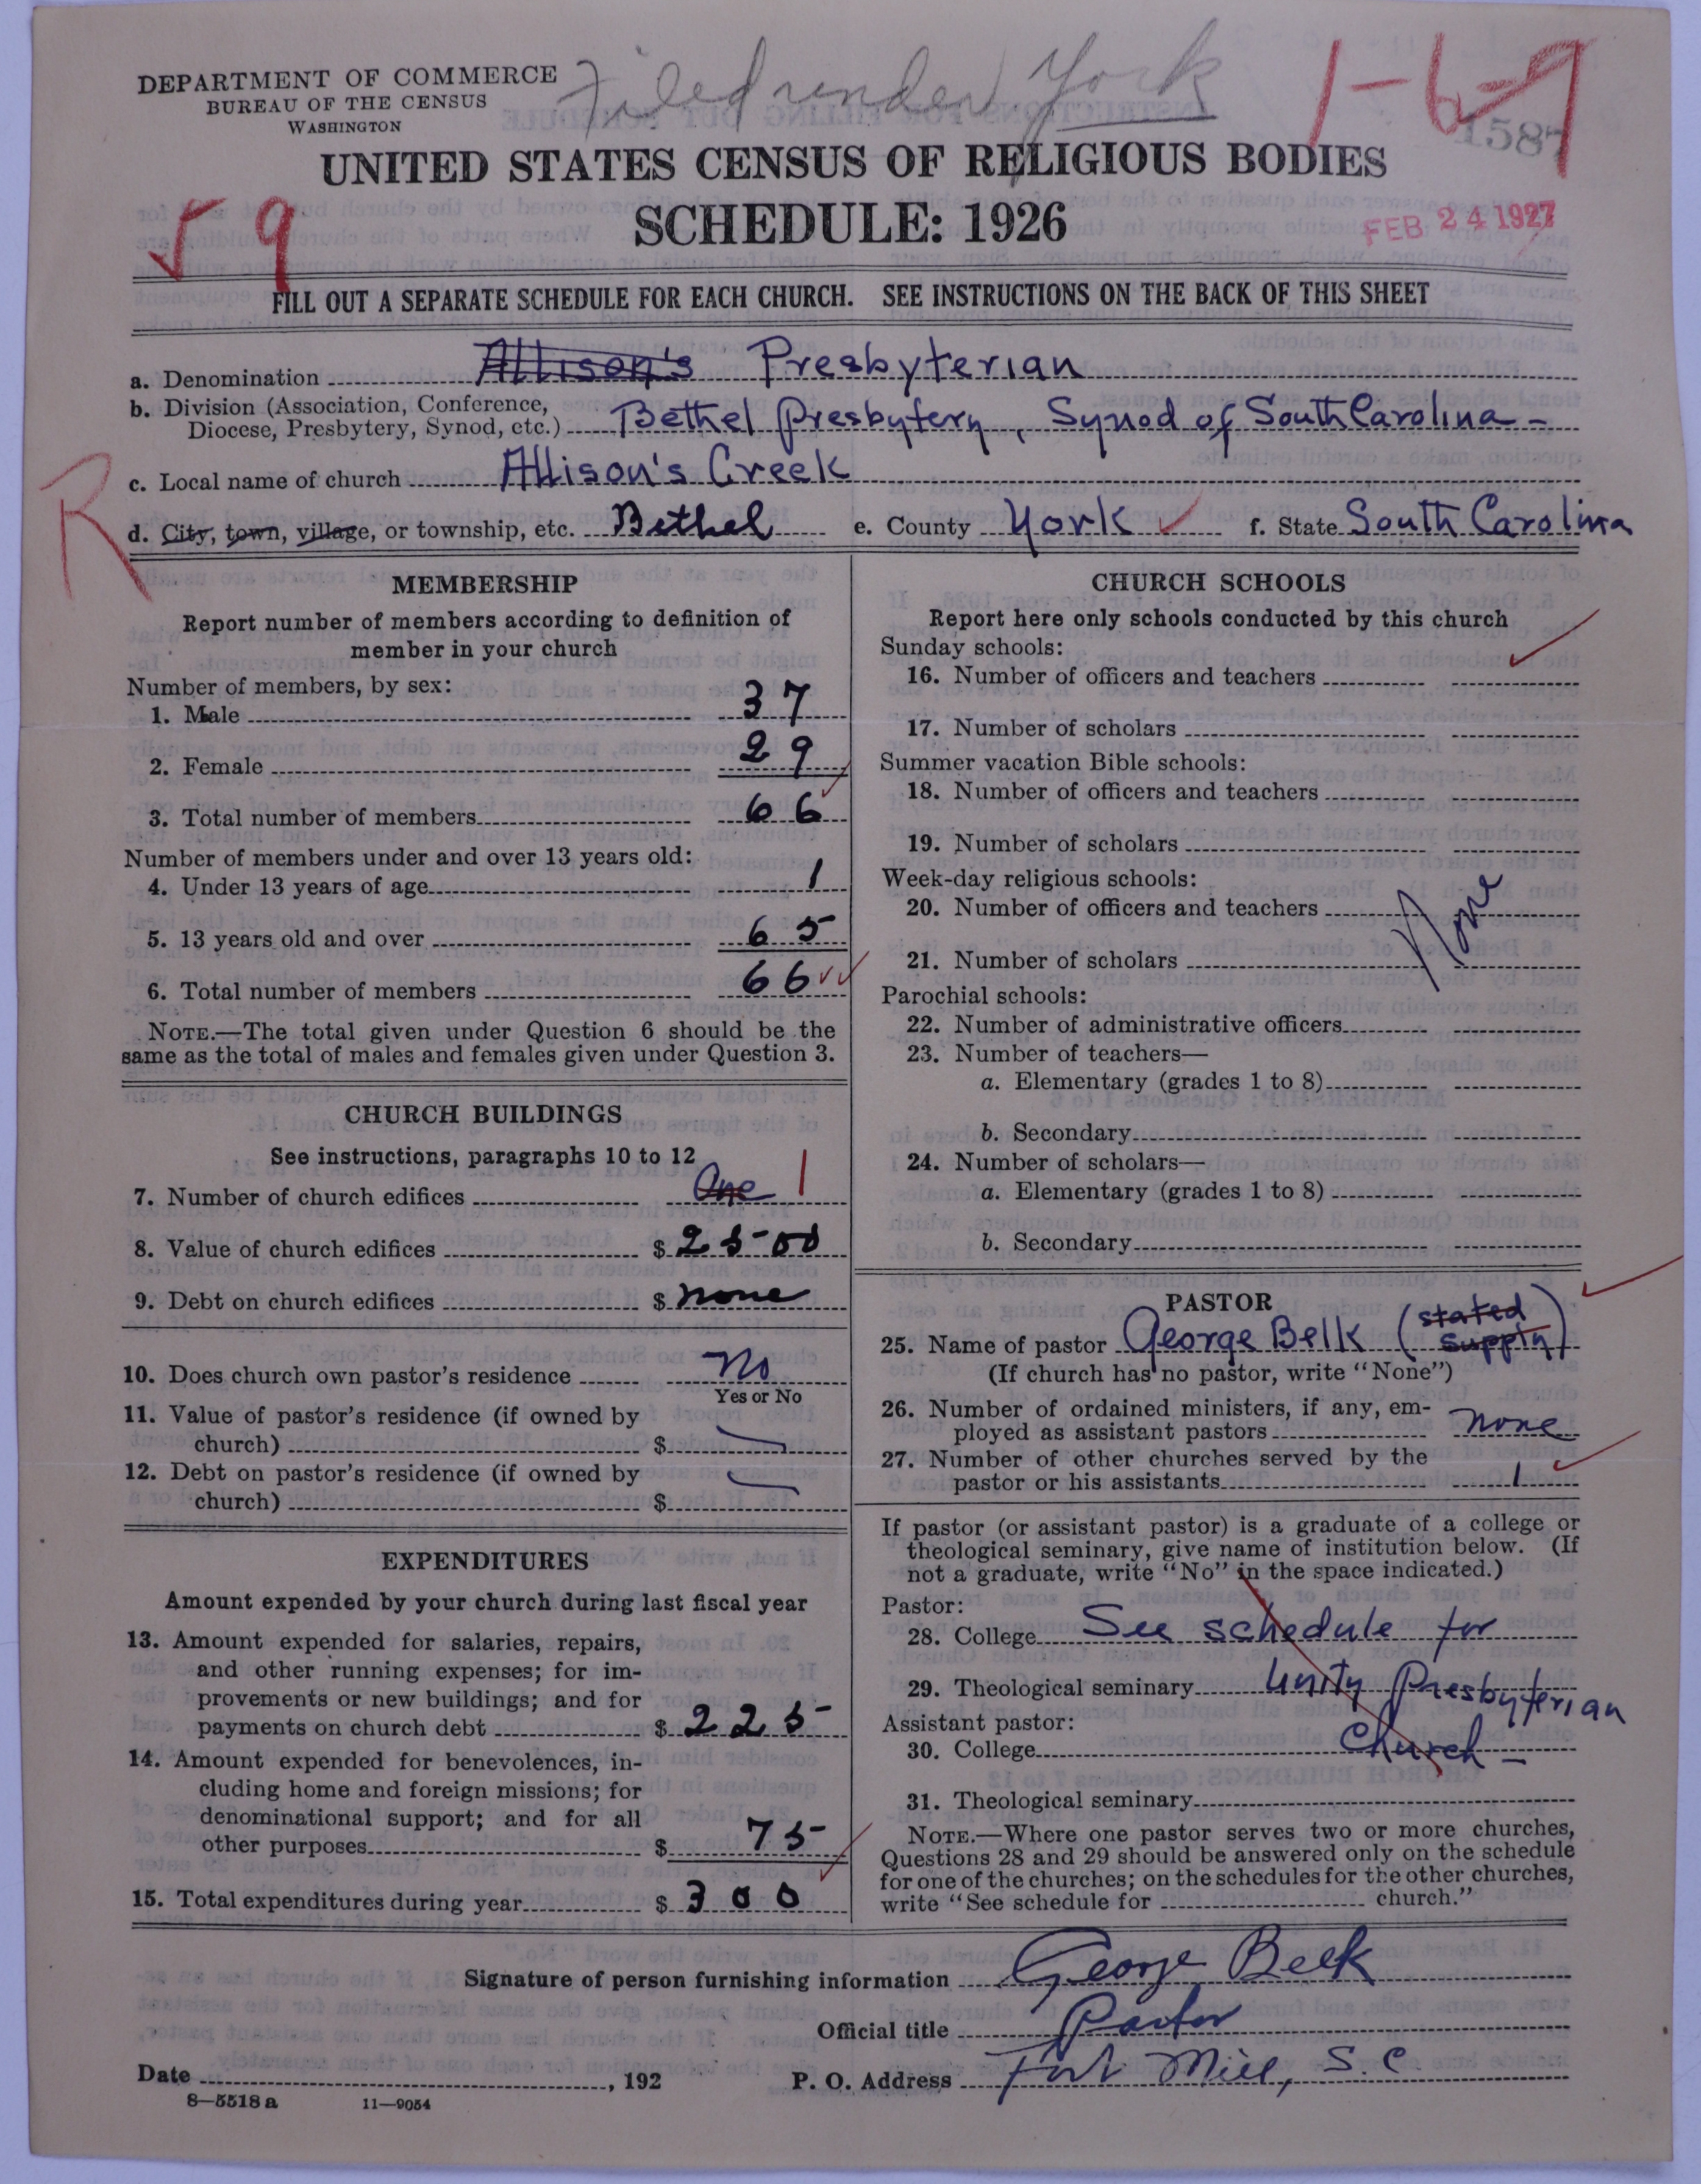 DEPARTMENT OF COMMERCE
BUREAU OF THE CENSUS
WASHINGTON
Filed under York
1-6-9
158
UNITED STATES CENSUS OF RELIGIOUS BODIES
SCHEDULE: 1926
9
FEB 24 1927
FILL OUT A SEPARATE SCHEDULE FOR EACH CHURCH. SEE INSTRUCTIONS ON THE BACK OF THIS SHEET
a. Denomination Allison's Presbyterian
b. Division (Association, Conference, Diocese, Presbytery, Synod, etc.) Bethel Presbytery, Synod of South Carolina -
R
c. Local name of church Allison's Creek
d. City, town, village, or township, etc. Bethel e. County York f. State South Carolina
MEMBERSHIP
Report number of members according to definition of
member in your church
Number of members, by sex:
1. Male 37
2. Female 29
3. Total number of members 66
Number of members under and over 13 years old:
4. Under 13 years of age 1
5. 13 years old and over 65
6. Total number of members 66
NOTE.—The total given under Question 6 should be the
same as the total of males and females given under Question 3.
CHURCH BUILDINGS
See instructions, paragraphs 10 to 12
7. Number of church edifices One 1
8. Value of church edifices $ 2500
9. Debt on church edifices $ none
10. Does church own pastor's residence No
Yes or No
11. Value of pastor's residence (if owned by
church) $
12. Debt on pastor's residence (if owned by
church) $
EXPENDITURES
Amount expended by your church during last fiscal year
13. Amount expended for salaries, repairs,
and other running expenses; for im-
provements or new buildings; and for
payments on church debt $ 225
14. Amount expended for benevolences, in-
cluding home and foreign missions; for
denominational support; and for all
other purposes $ 75
15. Total expenditures during year $ 300
CHURCH SCHOOLS
Report here only schools conducted by this church
Sunday schools:
16. Number of officers and teachers
17. Number of scholars
Summer vacation Bible schools:
18. Number of officers and teachers
19. Number of scholars
Week-day religious schools:
20. Number of officers and teachers
None
21. Number of scholars
Parochial schools:
22. Number of administrative officers
23. Number of teachers—
a. Elementary (grades 1 to 8)
b. Secondary
24. Number of scholars—
a. Elementary (grades 1 to 8)
b. Secondary
PASTOR
25. Name of pastor George Belk (stated supply)
(If church has no pastor, write "None")
26. Number of ordained ministers, if any, em-
ployed as assistant pastors none
27. Number of other churches served by the
pastor or his assistants 1
If pastor (or assistant pastor) is a graduate of a college or
theological seminary, give name of institution below. (If
not a graduate, write "No" in the space indicated.)
Pastor:
28. College See schedule for
29. Theological seminary Unity Presbyterian
Assistant pastor:
30. College Church -
31. Theological seminary
NOTE.—Where one pastor serves two or more churches,
Questions 28 and 29 should be answered only on the schedule
for one of the churches; on the schedules for the other churches,
write "See schedule for church."
Signature of person furnishing information George Belk
Official title Pastor
Date , 192 P. O. Address Fort Mill, S. C
8—5518 a 11—9054